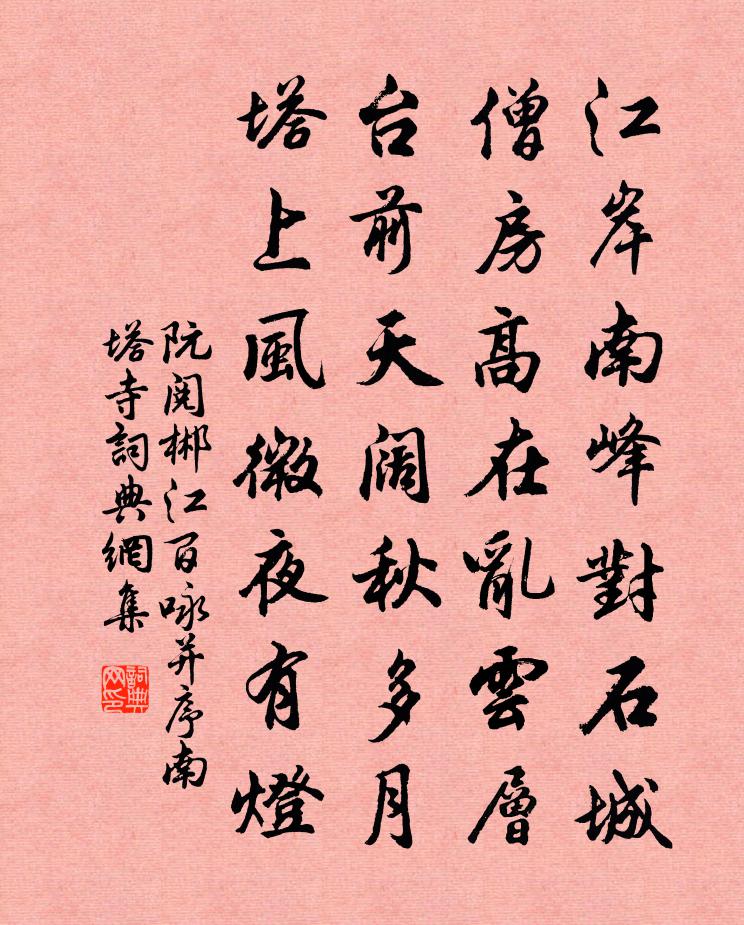 江岸南峰對石城
僧房高在亂雲層
台前天闊秋多月
塔上風微夜有燈
阮閱郴江百咏并序南
塔寺詞典網集
詞典
网印